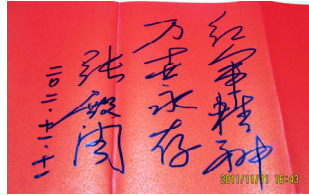 红军精神
万古永存
张殿阁
二〇一一·十一·十一
2011/11/11 16:43